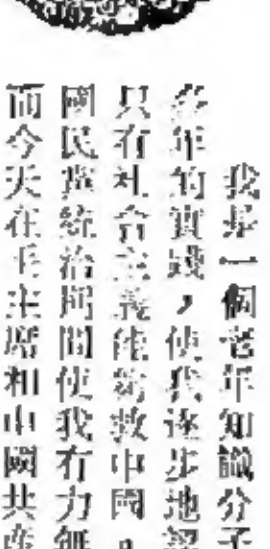 我是一個老年知識分子
多年的實踐，使我逐步地認
只有社会主義能夠救中國。
國民黨統治周間使我有力無
而今天在毛主席和中國共產